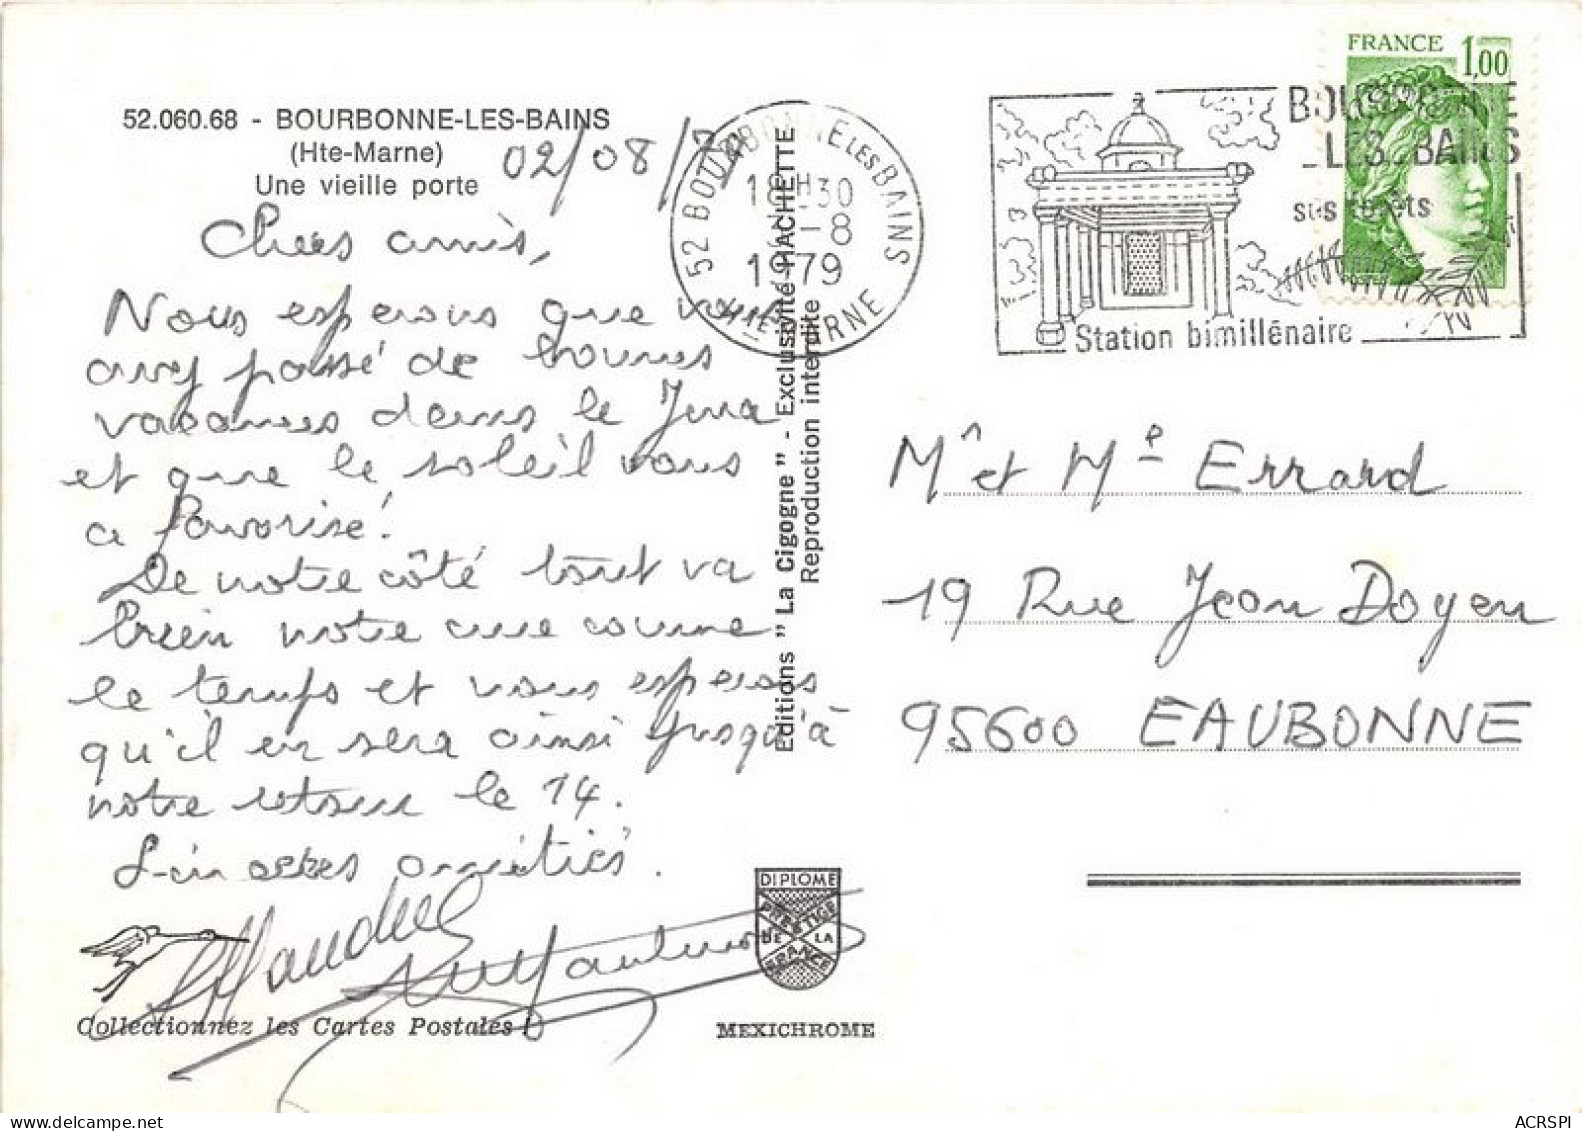 52.060.68 - BOURBONNE-LES-BAINS
(Hte-Marne)
Une vieille porte
02/08/79
Chers amis,
Nous esperons que vous
avez passé de bonnes
vacances dans le Jura
et que le soleil vous
a favorisé!
De notre côté tout va
bien notre cure comme
le temps et nous esperons
qu'il en sera ainsi jusqu'à
notre retour le 14.
amitiés.
Collectionnez les Cartes Postales !
Editions " La Cigogne " - Exclusivité HACHETTE
Reproduction interdite
DIPLOME
PRESTIGE
DE LA
FRANCE
MEXICHROME
52 BOURBONNE LES BAINS
18H30
-8
1979
HTE MARNE
BOURBONNE
LES BAINS
ses forêts
Station bimillénaire
FRANCE 1,00
Mr et Me Errard
19 Rue Jean Doyen
95600 EAUBONNE
www.delcampe.net
email@delcampe.net
ACRSPI